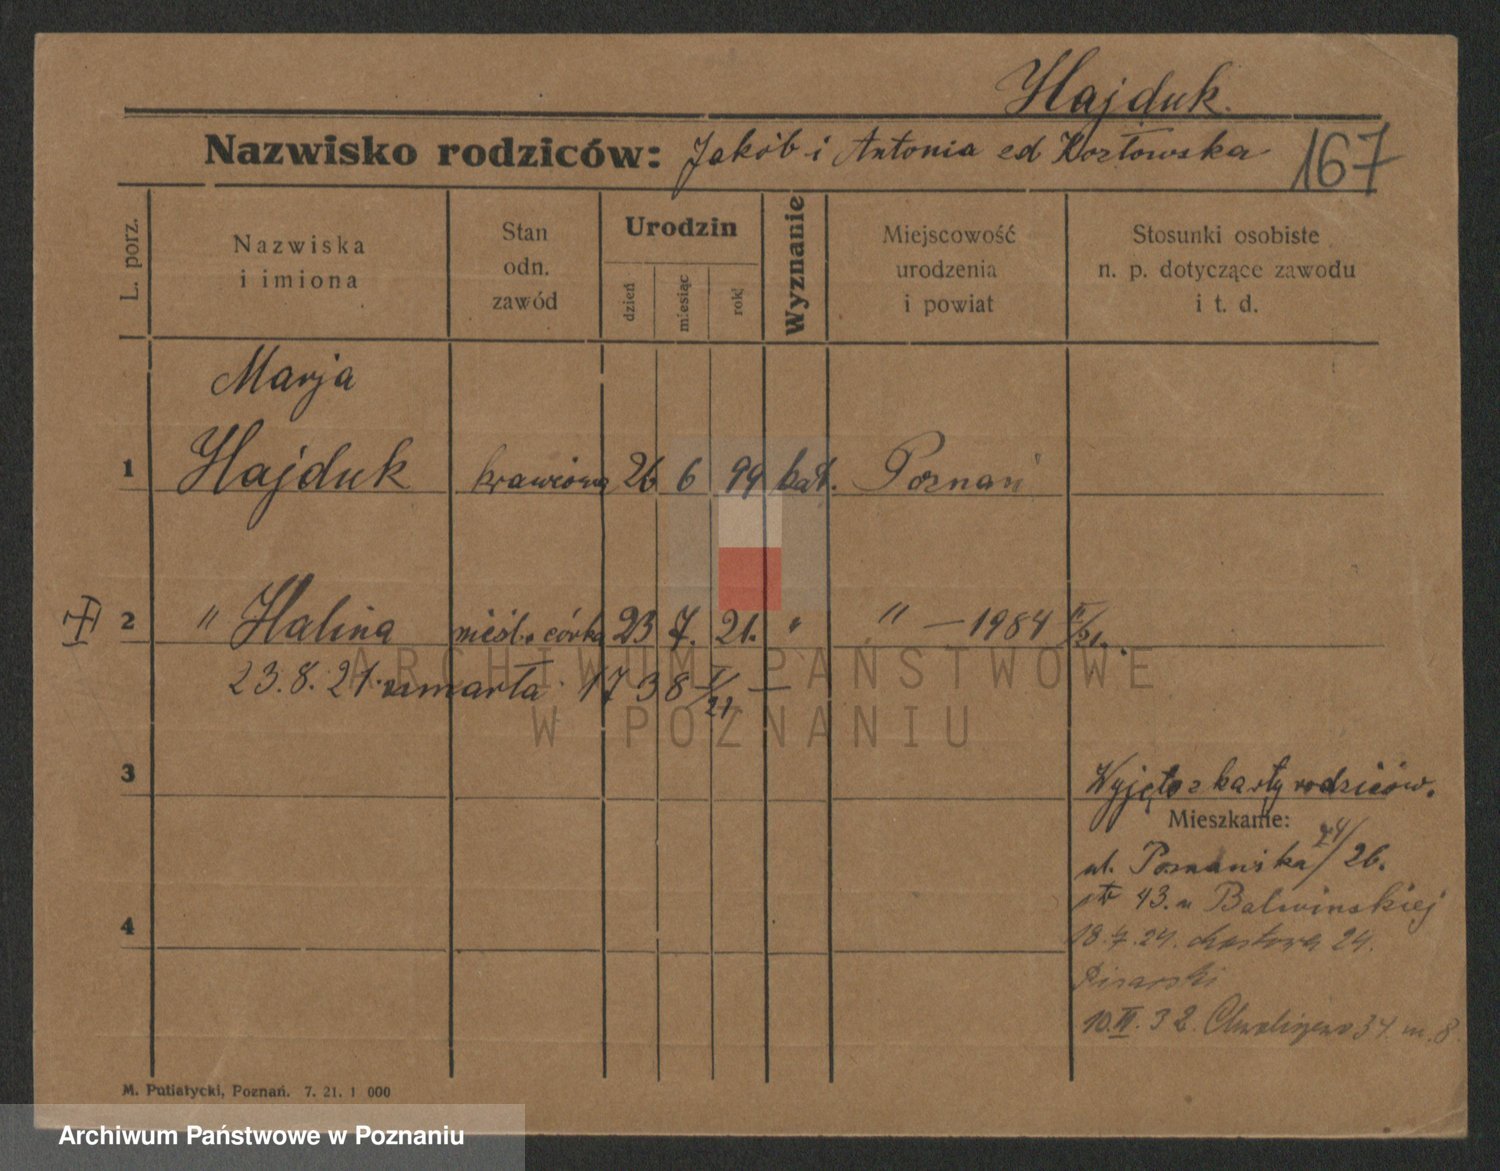 Hajduk.
Nazwisko rodziców: Jakób i Antonia Kozłowska
167
L. porz.
Nazwiska
i imiona
Stan
odn.
zawód
Urodzin
dzień
miesiąc
rok
Wyznanie
Miejscowość
urodzenia
i powiat
Stosunki osobiste
n. p. dotyczące zawodu
i t. d.
Marja
1 Hajduk krawcowa 26 6 99 kat. Poznań
2 " Halina nieśl. córka 23 7. 21. " " — 1984 V/21.
23.8.21. umarła 1738 V/21 —
ARCHIWUM PAŃSTWOWE
W POZNANIU
3
Wyjęto z karty rodziców.
Mieszkanie:
ul. Poznańska /26.
43. u Balwinskiej
4
18.7.24. Mostowa 24.
Pisarski
10.III.32. Chwaliszewo 34. m. 8.
M. Putiatycki, Poznań. 7. 21. 1 000
Archiwum Państwowe w Poznaniu